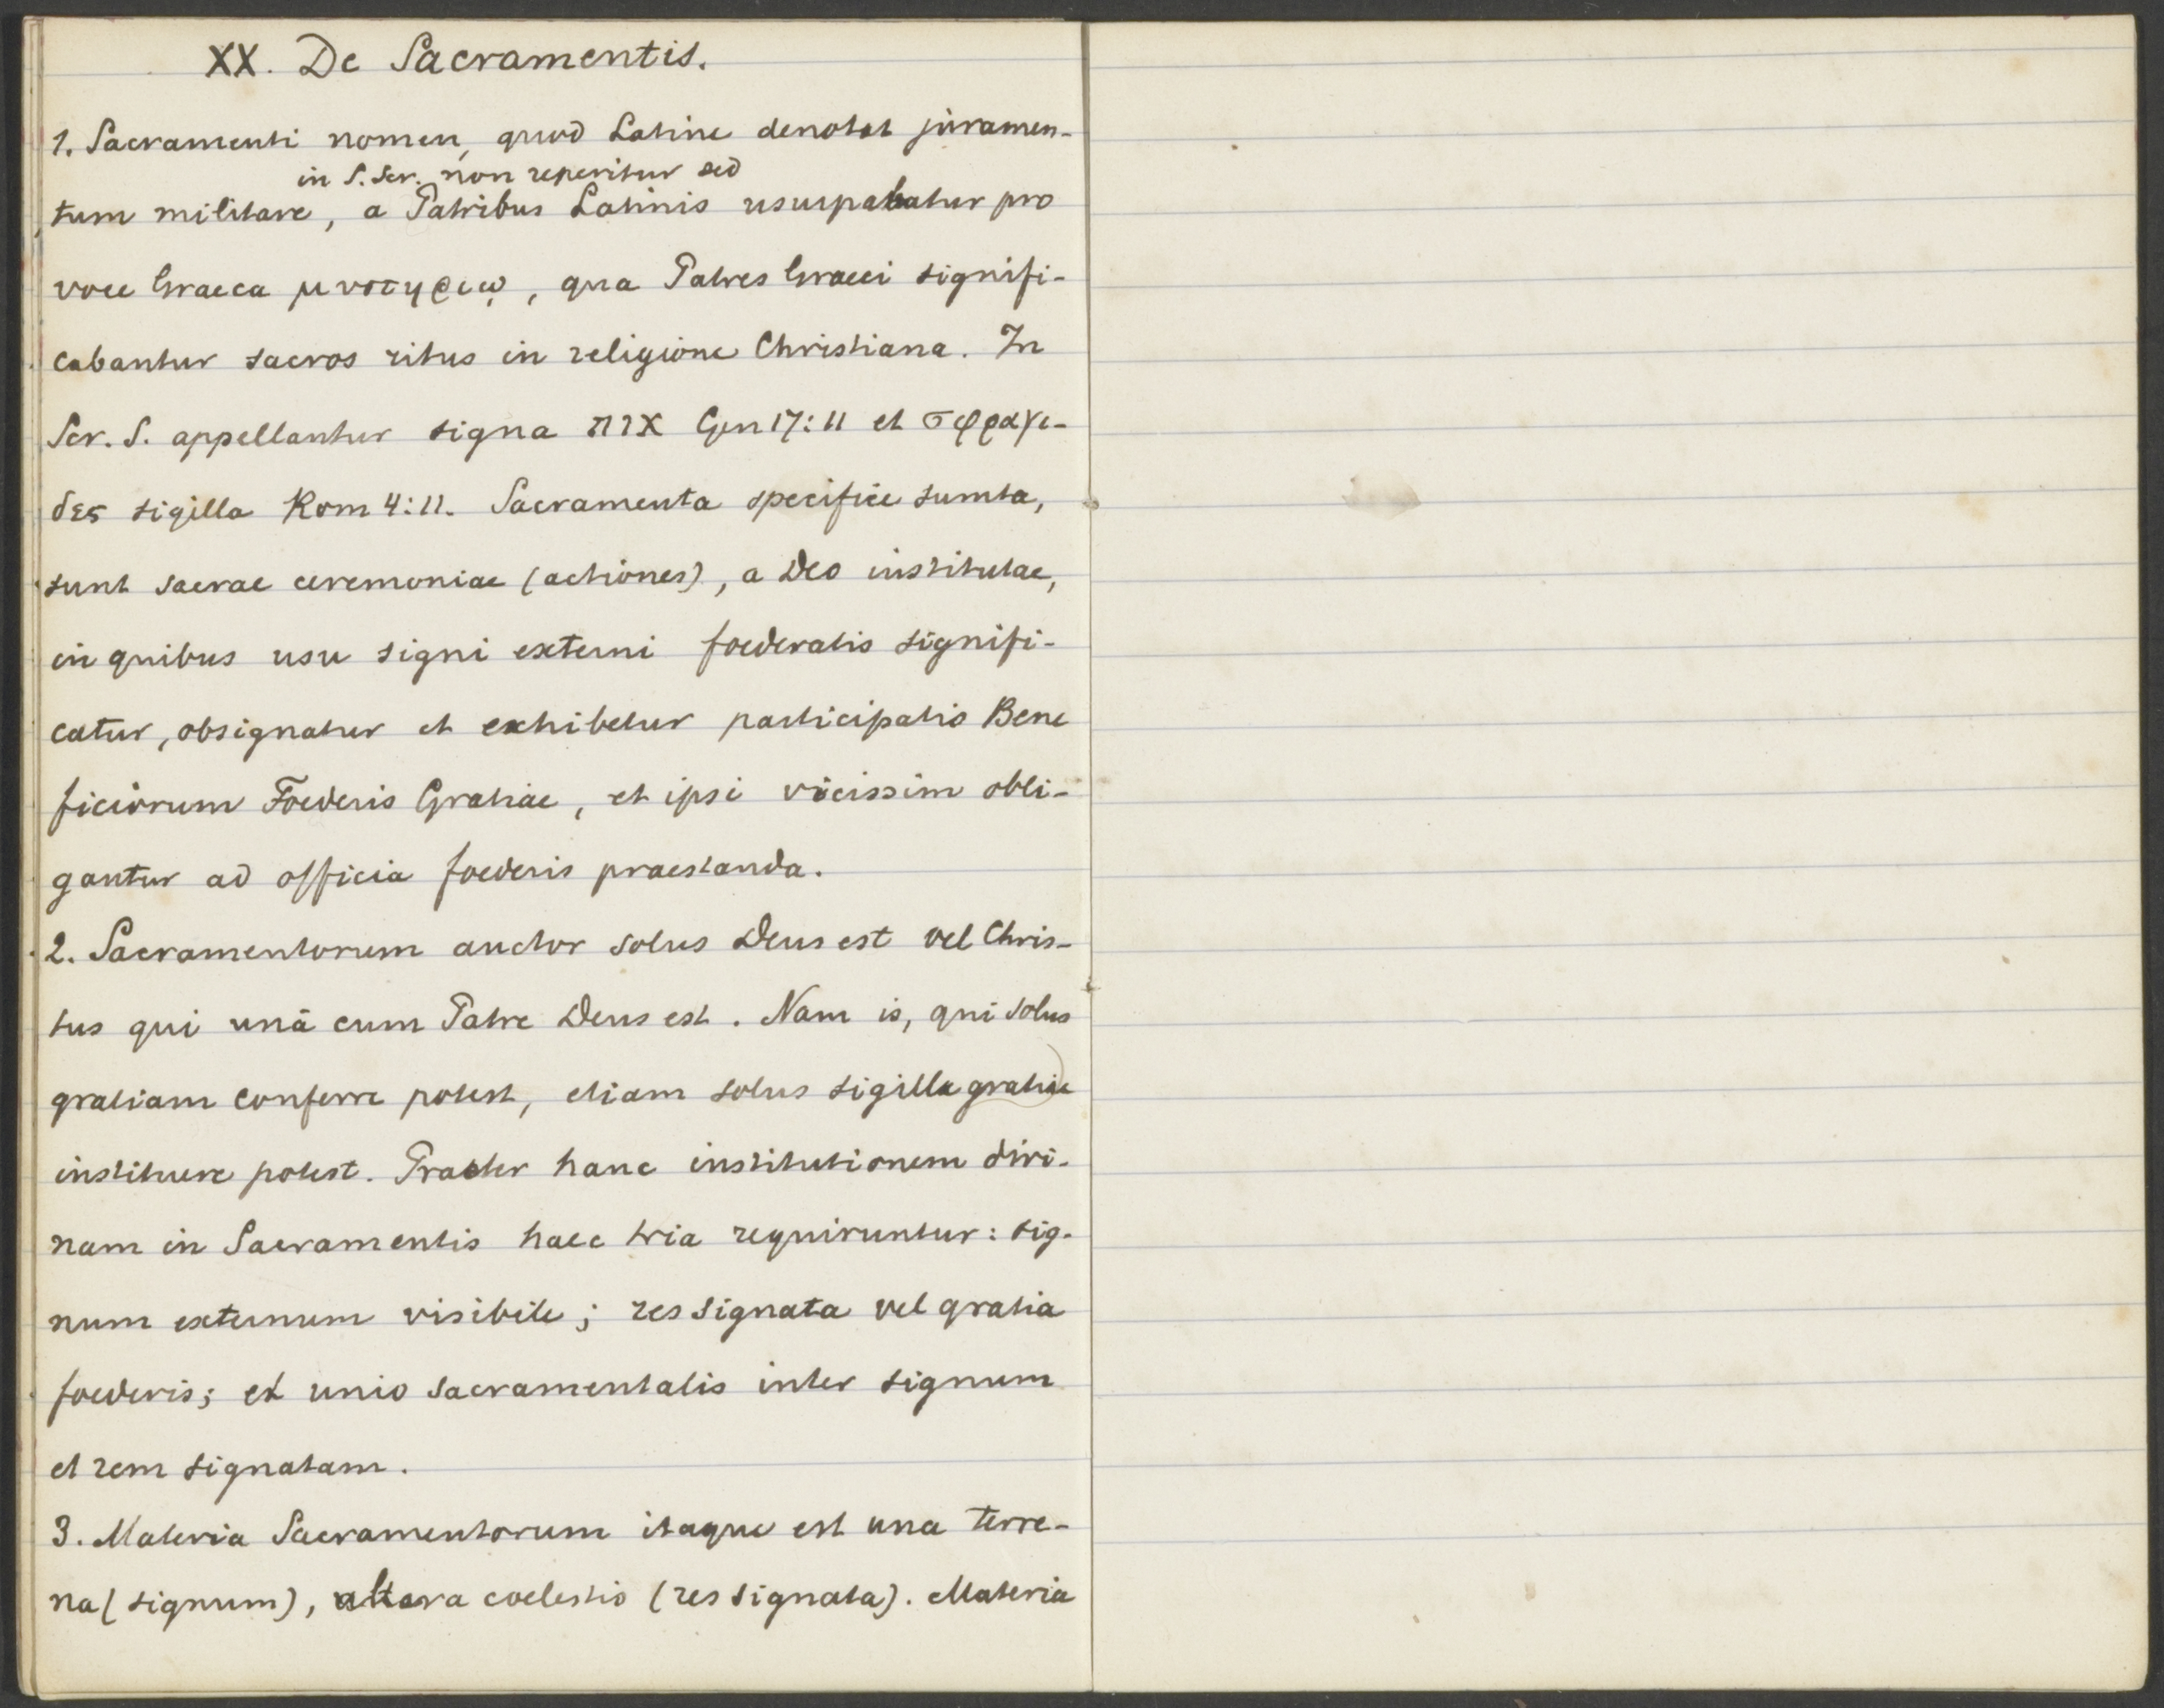 XX. De Sacramentis.
1. Sacramenti nomen, quod Latine denotat juramen-
in S. Scr. non reperitur sed
tum militare, a Patribus Latinis usurpabatur pro
voce Graeca μυστηριῳ, qua Patres Graeci signifi-
cabantur sacros ritus in religione Christiana. In
Scr. S. appellantur signa אות Gen 17:11 et σφραγι-
δες sigilla Rom 4:11. Sacramenta specifice sumta,
sunt sacrae ceremoniae (actiones), a Deo institutae,
in quibus usu signi externi foederalis signifi-
catur, obsignatur et exhibetur participatio Bene
ficiorum Foederis Gratiae, et ipsi vicissim obli-
gantur ad officia foederis praestanda.
2. Sacramentorum auctor solus Deus est vel Chris-
tus qui unâ cum Patre Deus est. Nam is, qui solus
gratiam conferre potest, etiam solus sigilla gratiae
instituere potest. Praeter hanc institutionem divi-
nam in Sacramentis haec tria requiruntur: sig-
num externum visibile; res signata vel gratia
foederis; et unio sacramentalis inter signum
et rem signatam.
3. Materia Sacramentorum itaque est una terre-
na (signum), altera coelestis (res signata). Materia